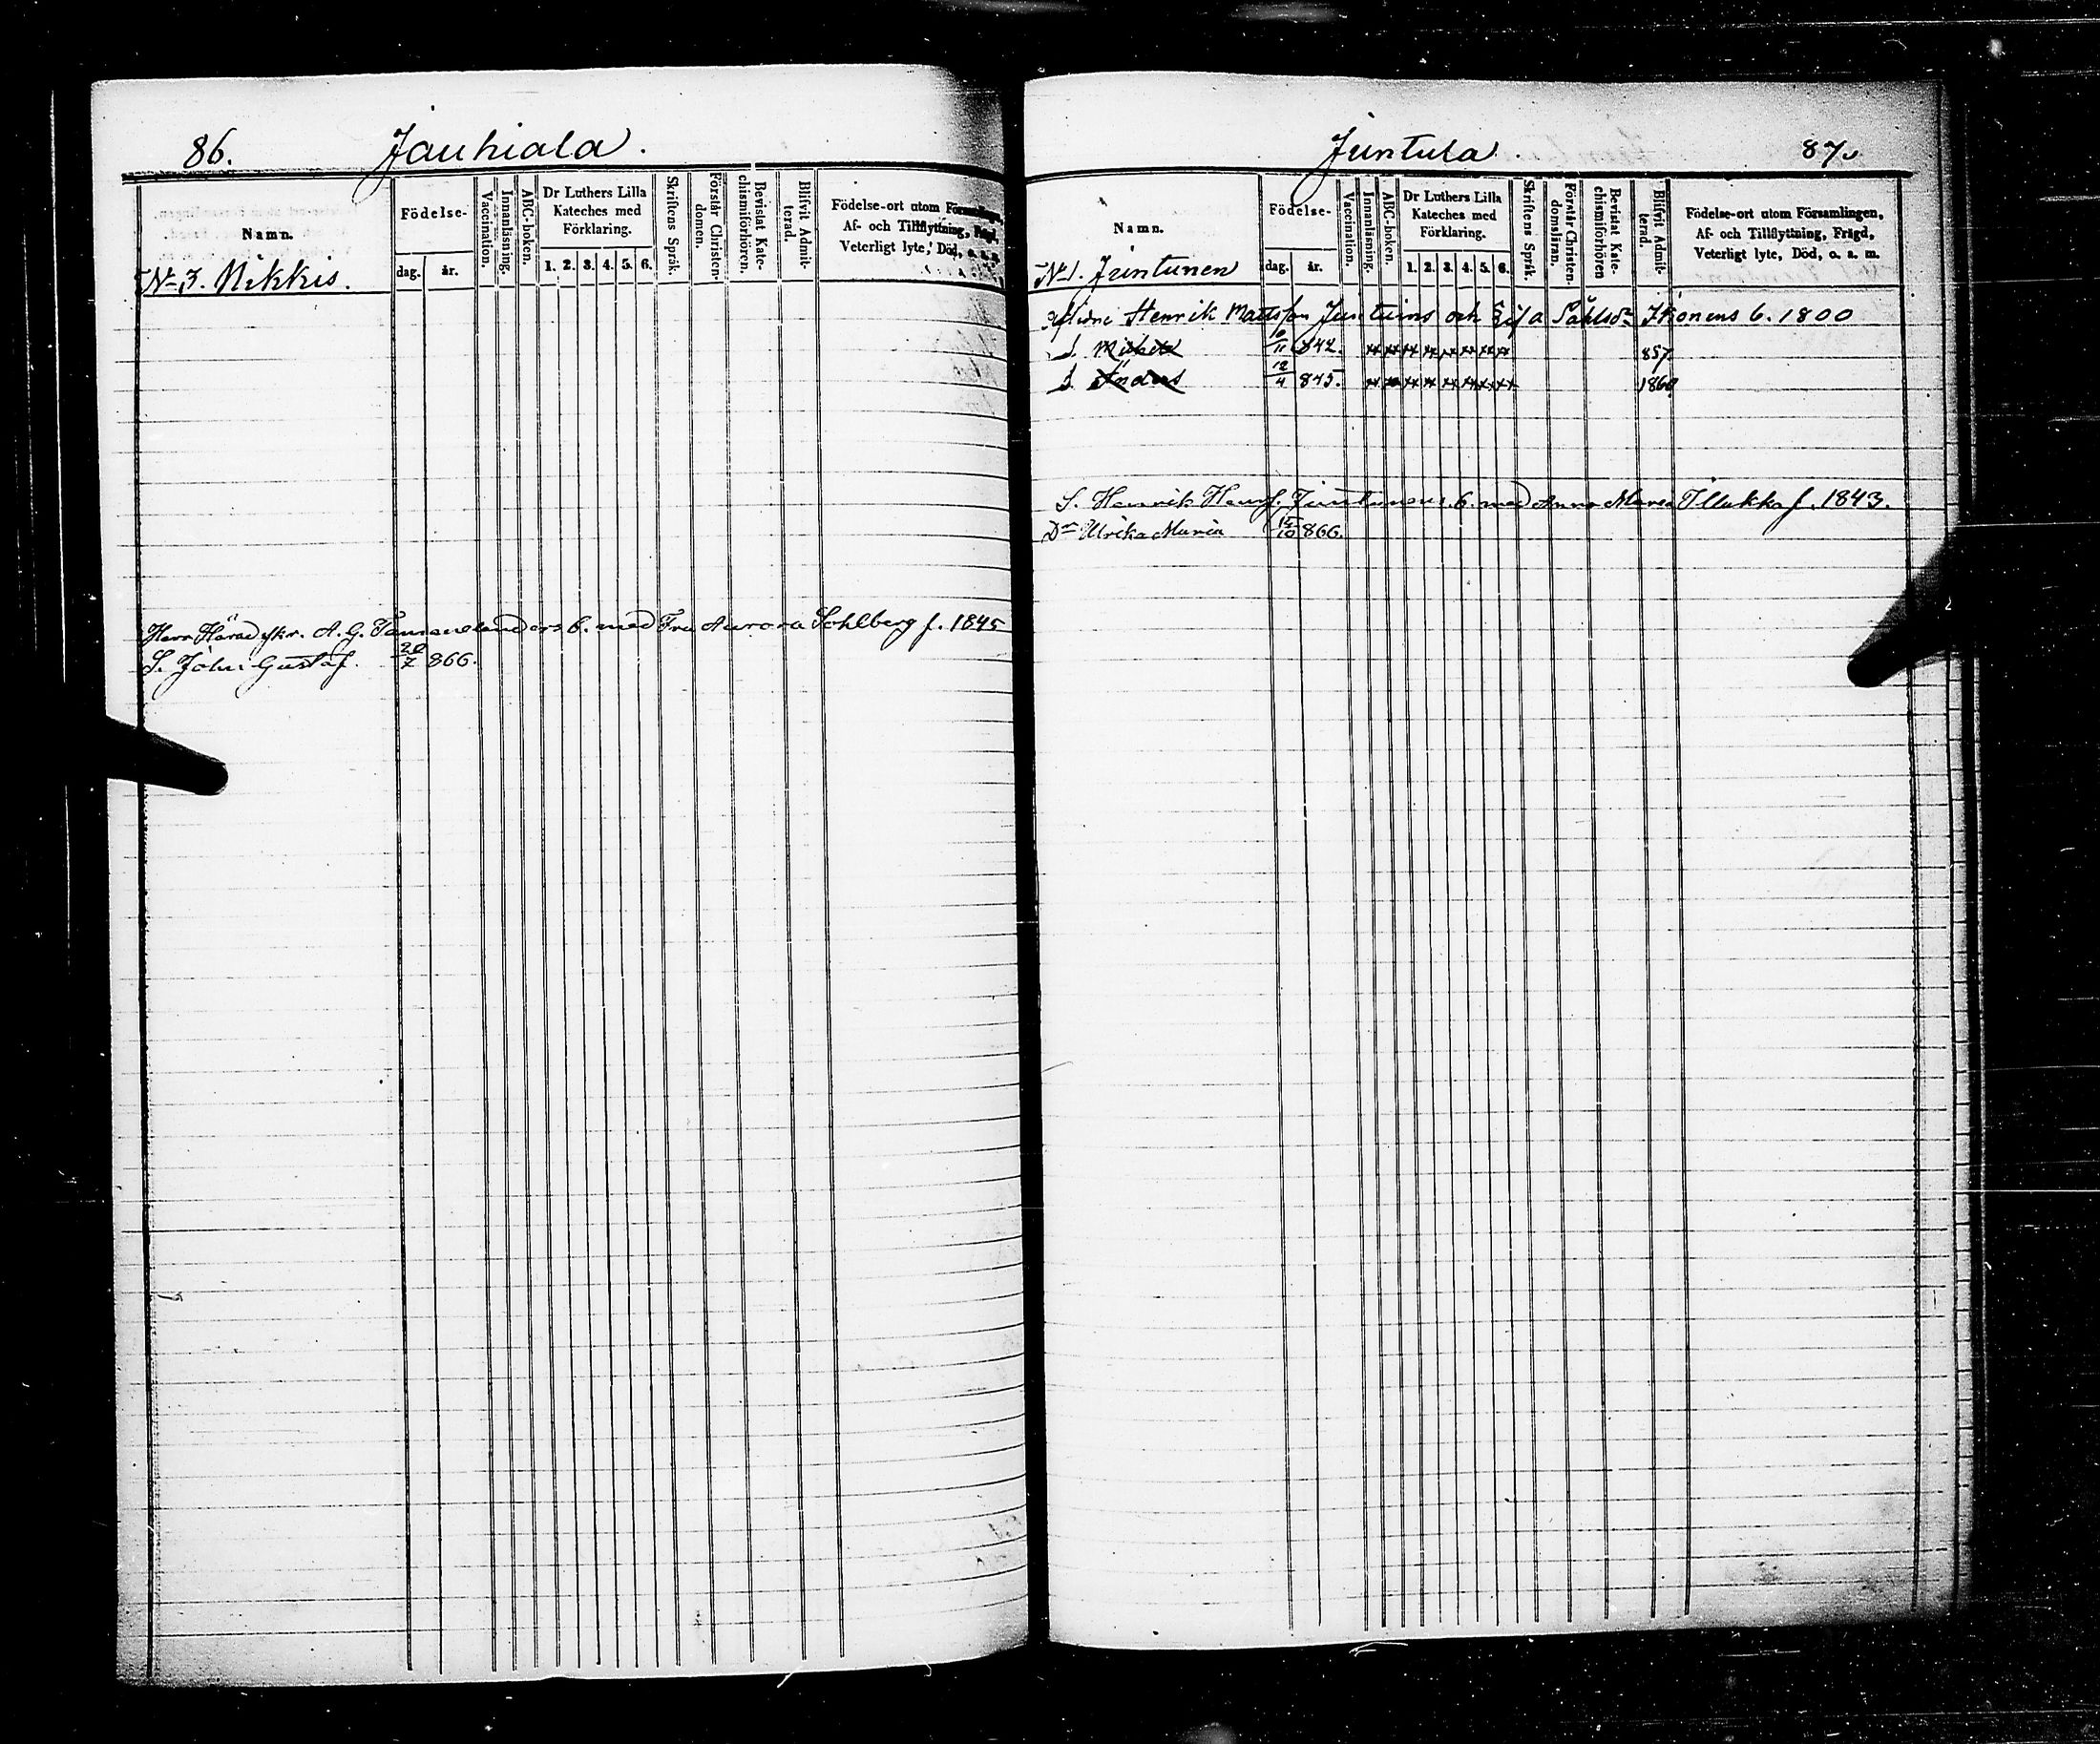 86.
Jauhiala.
Namn.
Födelse-
dag.
år.
Vaccination.
Innanläsning.
ABC-boken.
Dr Luthers Lilla
Kateches med
Förklaring.
1. 2. 3. 4. 5. 6.
Skriftens Språk.
Förstår Christen-
domen.
Bevistat Kate-
chismiförhören.
Blifvit Admit-
terad.
Födelse-ort utom Församlingen,
Af- och Tillflyttning, Frägd,
Veterligt lyte, Död, o. a. m.
No 3. Nikkis.
Herr Häradsskr. A. G. b. med Fru Aurora Sohlberg f. 1845
S. John Gustaf. 20/7 866.
Juntula.
87.
Namn.
Födelse-
dag.
år.
Vaccination.
Innanläsning.
ABC-boken.
Dr Luthers Lilla
Kateches med
Förklaring.
1. 2. 3. 4. 5. 6.
Skriftens Språk.
Förstår Christen-
domsläran.
Bevistat Kate-
chismiförhören
Blifvit Admit-
terad.
Födelse-ort utom Församlingen,
Af- och Tillflyttning, Frägd,
Veterligt lyte, Död, o. a. m.
No 1. Juntunen
Henrik Mattsson Juntuins och Eisa Påhlsdr Ikonens b. 1800
S. 10/11 842. 857.
S. Anders 12/4 845. 1860
S. Henrik Henrs. Juntunens b. med Anna Maria Illukka f. 1843.
Dr Ulrika Maria 15/10 866.